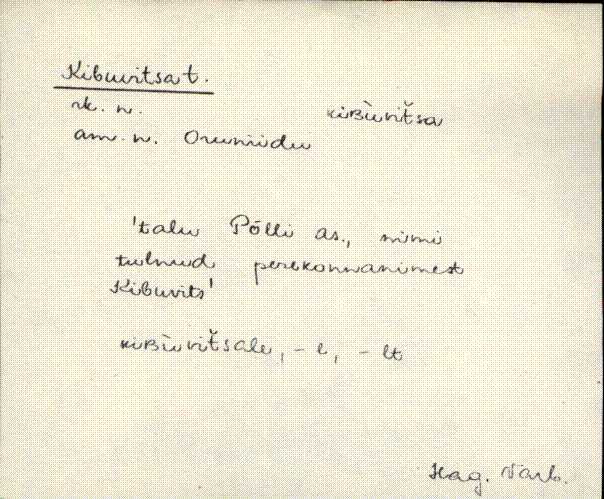 Kibuvitsa t.
rk. n. kiʙùvìťsa
am. n. Oruniidu
'talu Põlli as., nimi
tulnud perekonnanimest
Kibuvits'
kiʙùvìťsale, -l, -lt
Hag. Varb.